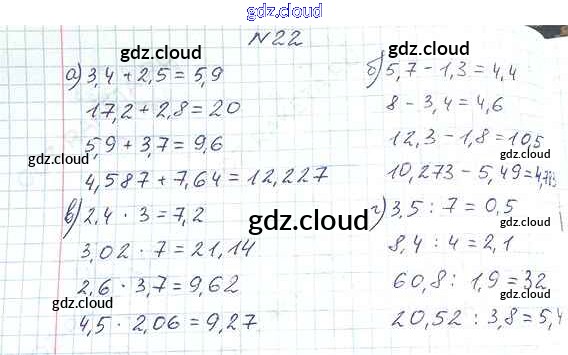 gdz.cloud
№22
а) 3,4 + 2,5 = 5,9
17,2 + 2,8 = 20
5,9 + 3,7 = 9,6
4,587 + 7,64 = 12,227
б) 5,7 - 1,3 = 4,4
8 - 3,4 = 4,6
12,3 - 1,8 = 10,5
10,273 - 5,49 = 4,783
в) 2,4 · 3 = 7,2
3,02 · 7 = 21,14
2,6 · 3,7 = 9,62
4,5 · 2,06 = 9,27
г) 3,5 : 7 = 0,5
8,4 : 4 = 2,1
60,8 : 1,9 = 32
20,52 : 3,8 = 5,4
gdz.cloud
gdz.cloud
gdz.cloud
gdz.cloud
gdz.cloud
gdz.cloud
gdz.cloud
gdz.cloud
gdz.cloud